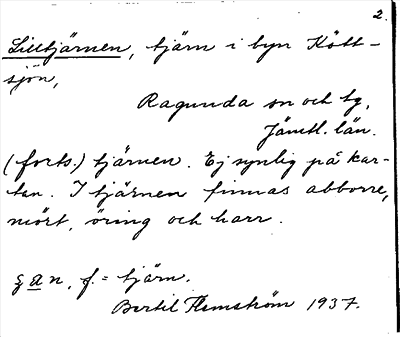 2.
Lilltjärnen, tjärn i byn Kött-
sjön,
Ragunda sn och tg,
Jämtl. län.
(forts.) tjärnen. Ej synlig på kar-
tan. I tjärnen finnas abborre,
mört, öring och harr.
f. = tjärn.
Bertil Flemström 1937.